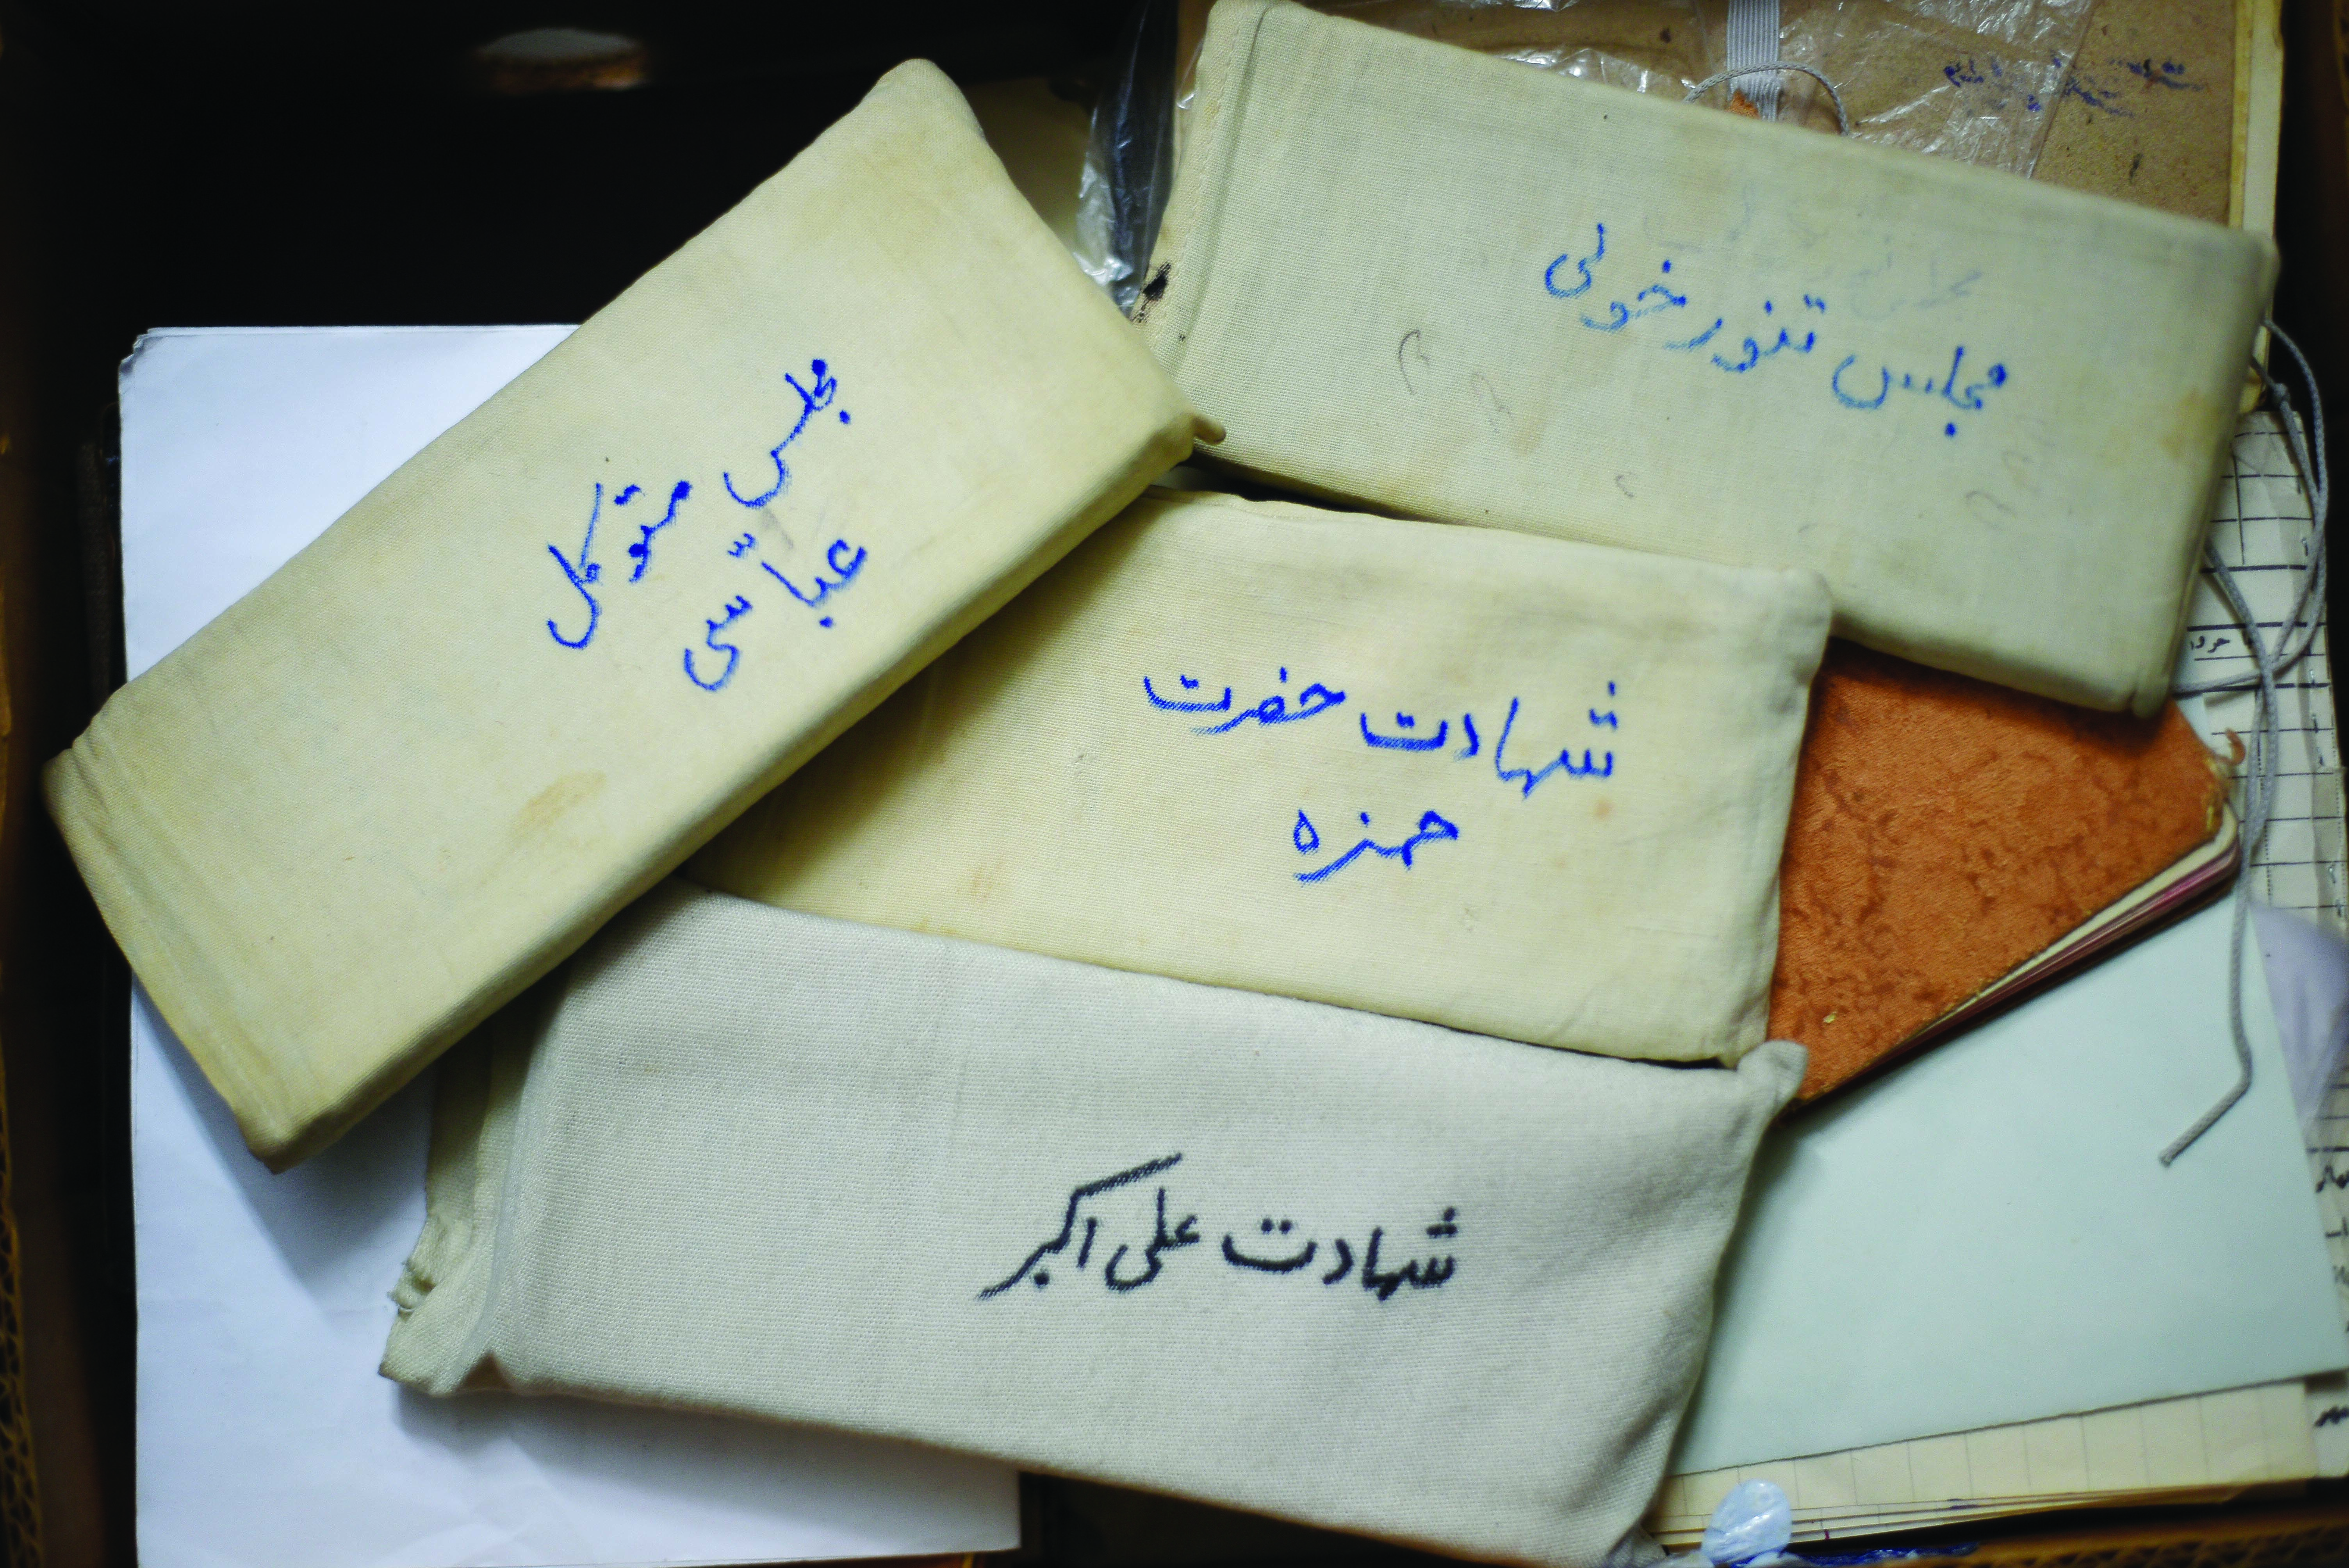 مجلس تنور خولی
مجلس متوکل
عباّسی
شهادت حضرت
حمزه
شهادت علی اکبر